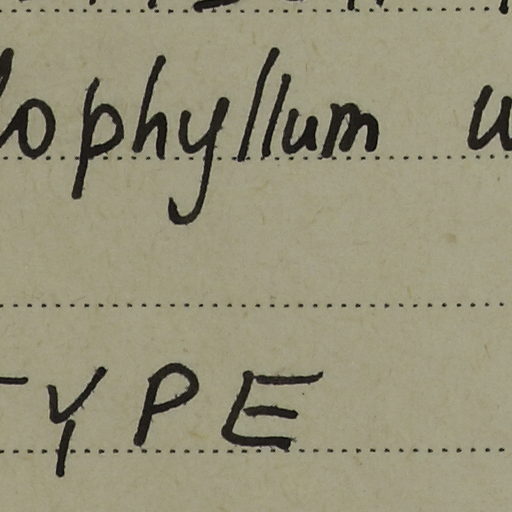 lophyllum
TYPE